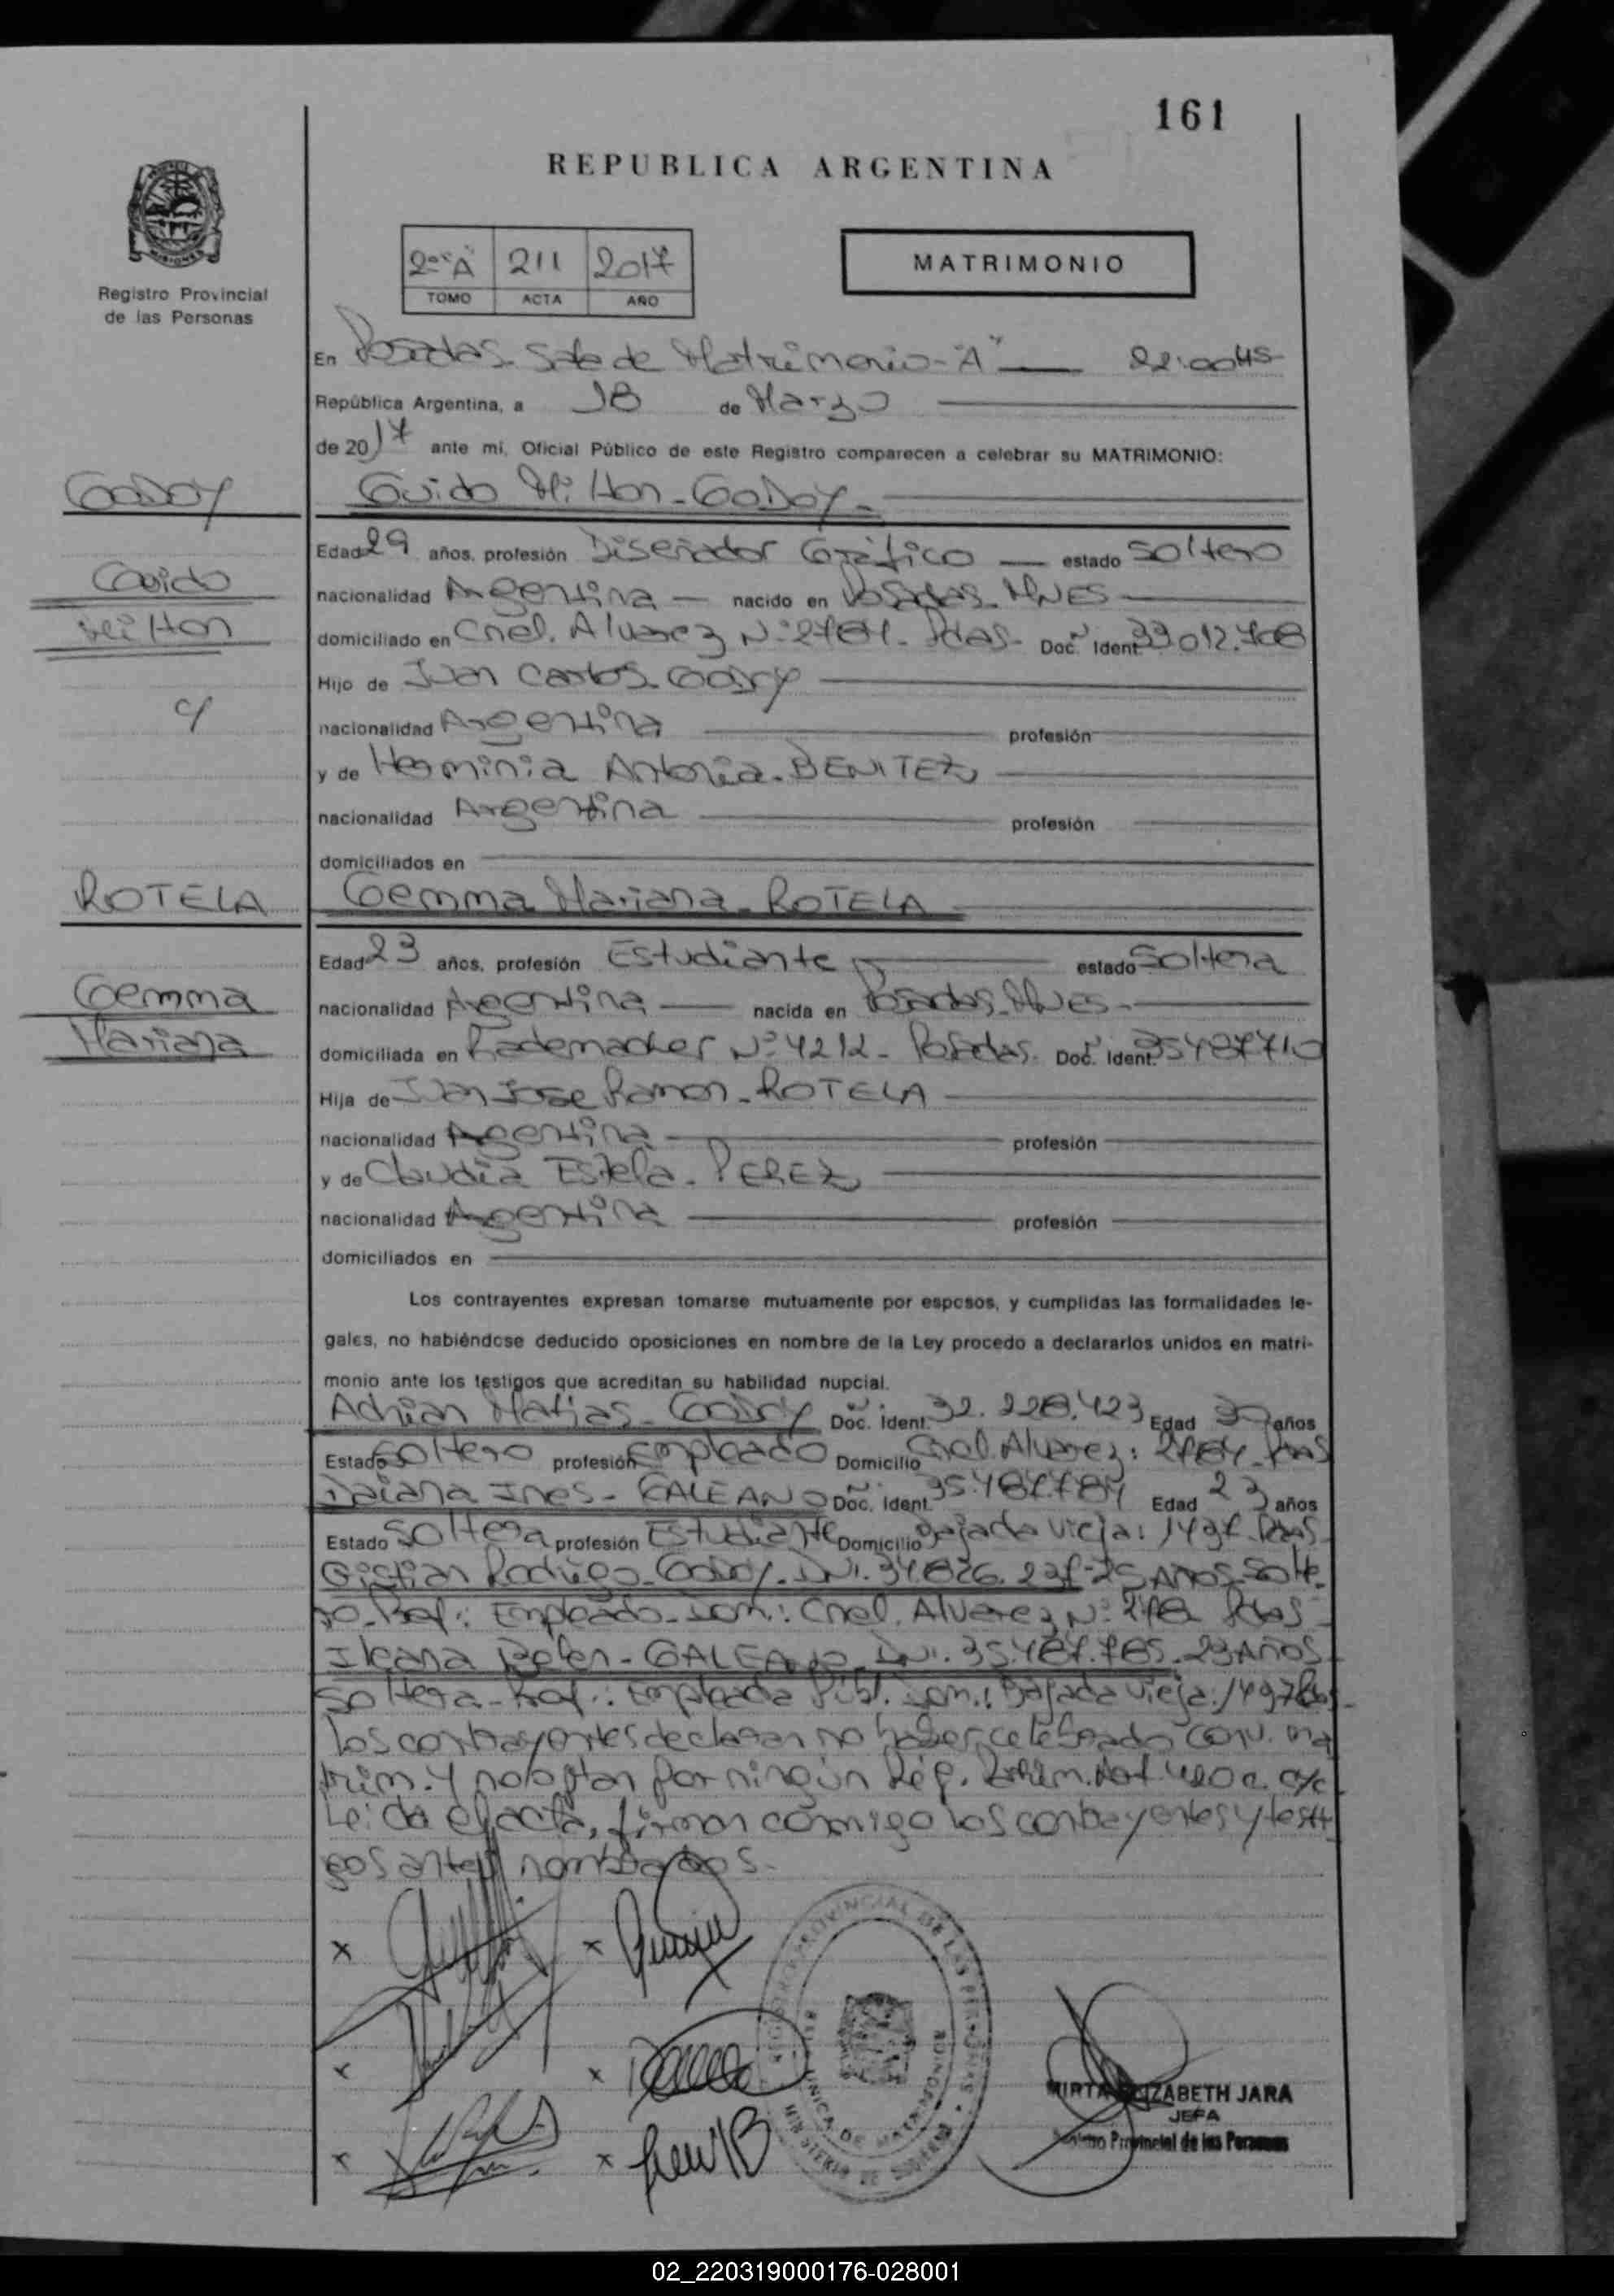 161
REPUBLICA ARGENTINA
MISIONES
Registro Provincial
de las Personas
2do "A" 211 2017
TOMO ACTA AÑO
MATRIMONIO
En Posadas - Sala de Matrimonio - "A" 22:00 HS
República Argentina, a 18 de Marzo
de 2017 ante mí, Oficial Público de este Registro comparecen a celebrar su MATRIMONIO:
GODOY Guido Milton - GODOY -
Edad 29 años, profesión Diseñador Gráfico estado Soltero
Guido
nacionalidad Argentina nacido en Posadas - MNES
Milton
domiciliado en Cnel. Alvarez N° 2784 - Pdas - Doc. Ident. 33.012.708
Hijo de Juan Carlos - Godoy
c/
nacionalidad Argentina profesión
y de Herminia Antonia - BENITEZ
nacionalidad Argentina profesión
domiciliados en
ROTELA Gemma Mariana - ROTELA
Edad 23 años, profesión Estudiante estado Soltera
Gemma
nacionalidad Argentina nacida en Posadas - MNES -
Mariana
domiciliada en Rademacher N° 4212 - Posadas - Doc. Ident. 35487710
Hija de Juan Jose Ramon - ROTELA
nacionalidad Argentina profesión
y de Claudia Estela - PEREZ
nacionalidad Argentina profesión
domiciliados en
Los contrayentes expresan tomarse mutuamente por esposos, y cumplidas las formalidades le-
gales, no habiéndose deducido oposiciones en nombre de la Ley procedo a declararlos unidos en matri-
monio ante los testigos que acreditan su habilidad nupcial.
Adrian Matias - Godoy Doc. Ident. 32.228.423 Edad 30 años
Estado Soltero profesión Empleado Domicilio Cnel. Alvarez: 2784 - Pdas
Daiana Ines - GALEANO Doc. Ident. 35.487.784 Edad 23 años
Estado Soltera profesión Estudiante Domicilio Bajada Vieja: 1497 - Pdas -
Cristian Rodrigo - Godoy - DNI. 34.826. - 25 AÑOS - Solte-
ro - Prof.: Empleado - Dom.: Cnel. Alvarez N° Pdas -
Ileana Belen - GALEANO - DNI. 35.487.785 - 23 AÑOS -
Soltera - Prof.: Empleada Públ. Dom.: Bajada Vieja: 1497 Pdas -
Los contrayentes declaran no haber celebrado conv. ma
trim. y no optan por ningún Rég. Patrim. Art. 420
Leida el acta, firman conmigo los contrayentes y testi
gos antes nombrados.
REGISTRO PROVINCIAL DE LAS PERSONAS
MINISTERIO DE
MIRTA ELIZABETH JARA
JEFA
Registro Provincial de las Personas
02_220319000176-028001